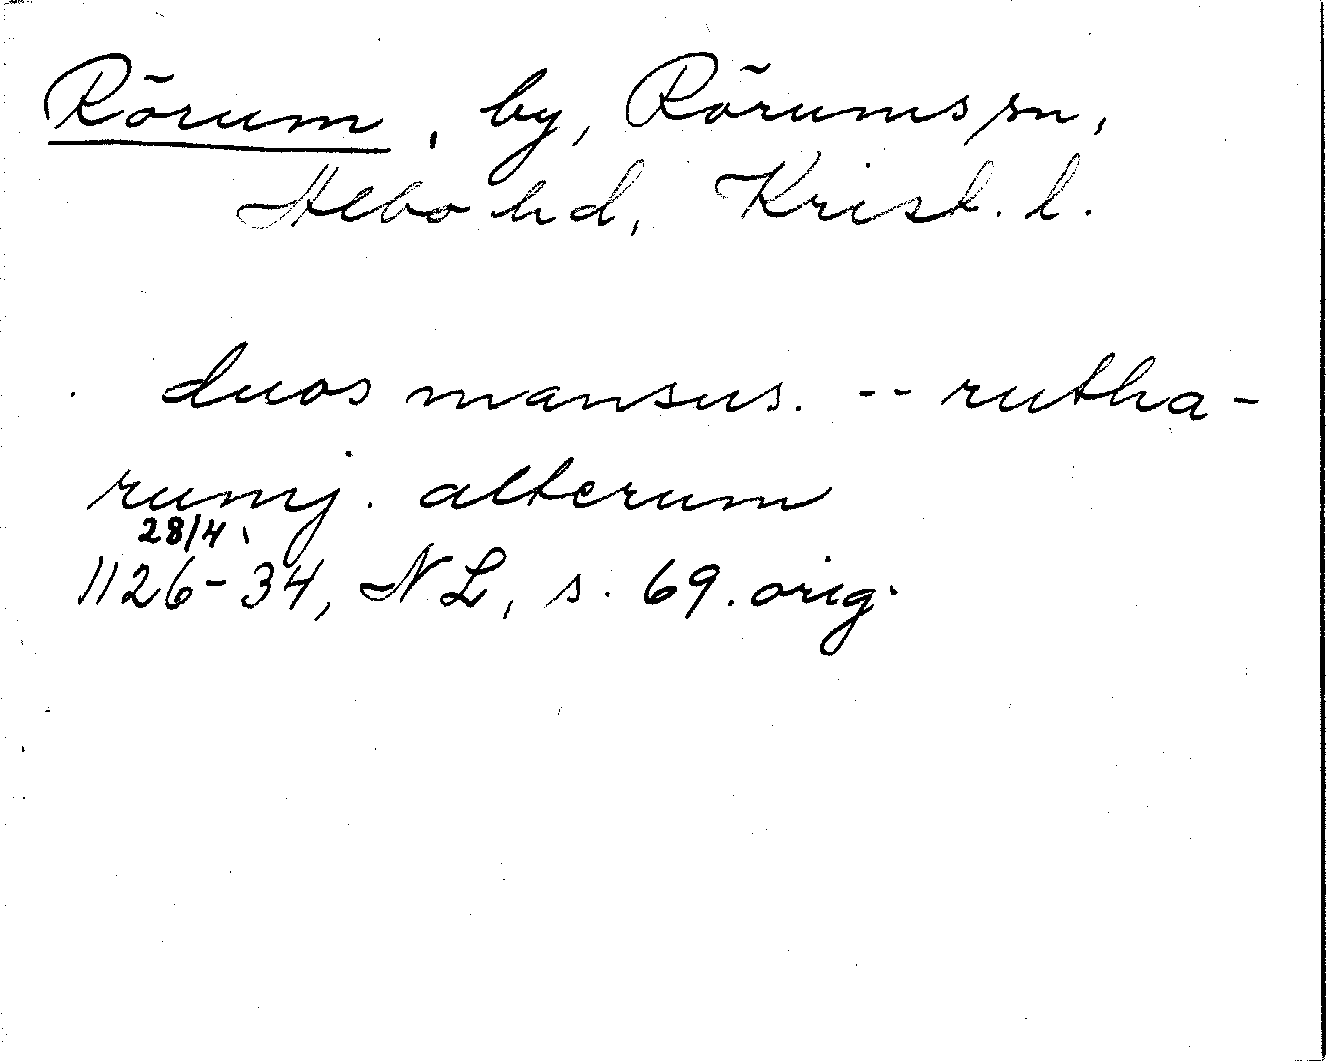 Rörum, by, Rörums sn,
Albo hd, Krist. l.
duos mansus. -- rutha-
rumj. alterum
28/4
1126-34, NL, s. 69. orig.